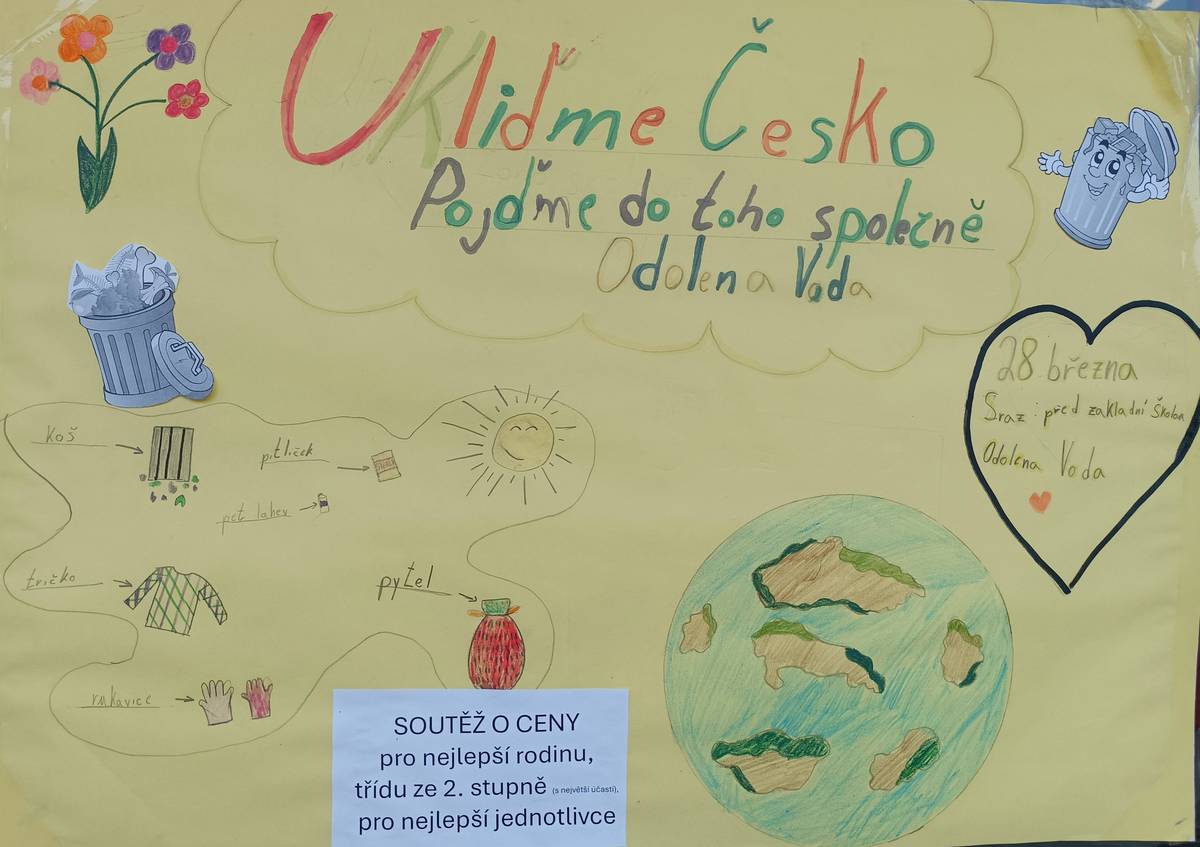 Ukliďme Česko
Pojďme do toho společně
Odolena Voda
28 března
Sraz: před zakladní školou
Odolena Voda
koš
pitlíček
pet lahev
tričko
pytel
rukavice
SOUTĚŽ O CENY
pro nejlepší rodinu,
třídu ze 2. stupně (s největší účastí),
pro nejlepší jednotlivce